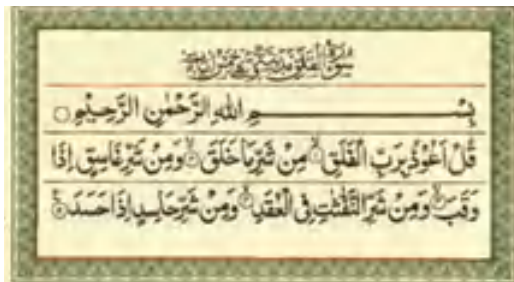 سورة الفلق مدنية وهي خمس آيات
بسم الله الرحمن الرحيم
قل اعوذ برب الفلق ۙ من شر ما خلق ۙ ومن شر غاسق اذا
وقب ۙ ومن شر النفثت في العقد ۙ ومن شر حاسد اذا حسد